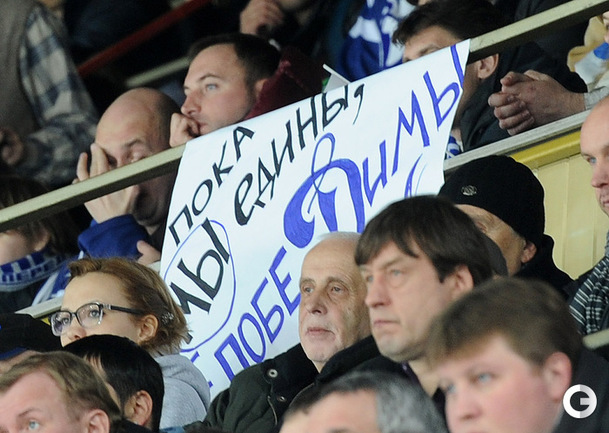 ПОКА
МЫ едины,
ПОБЕДимы